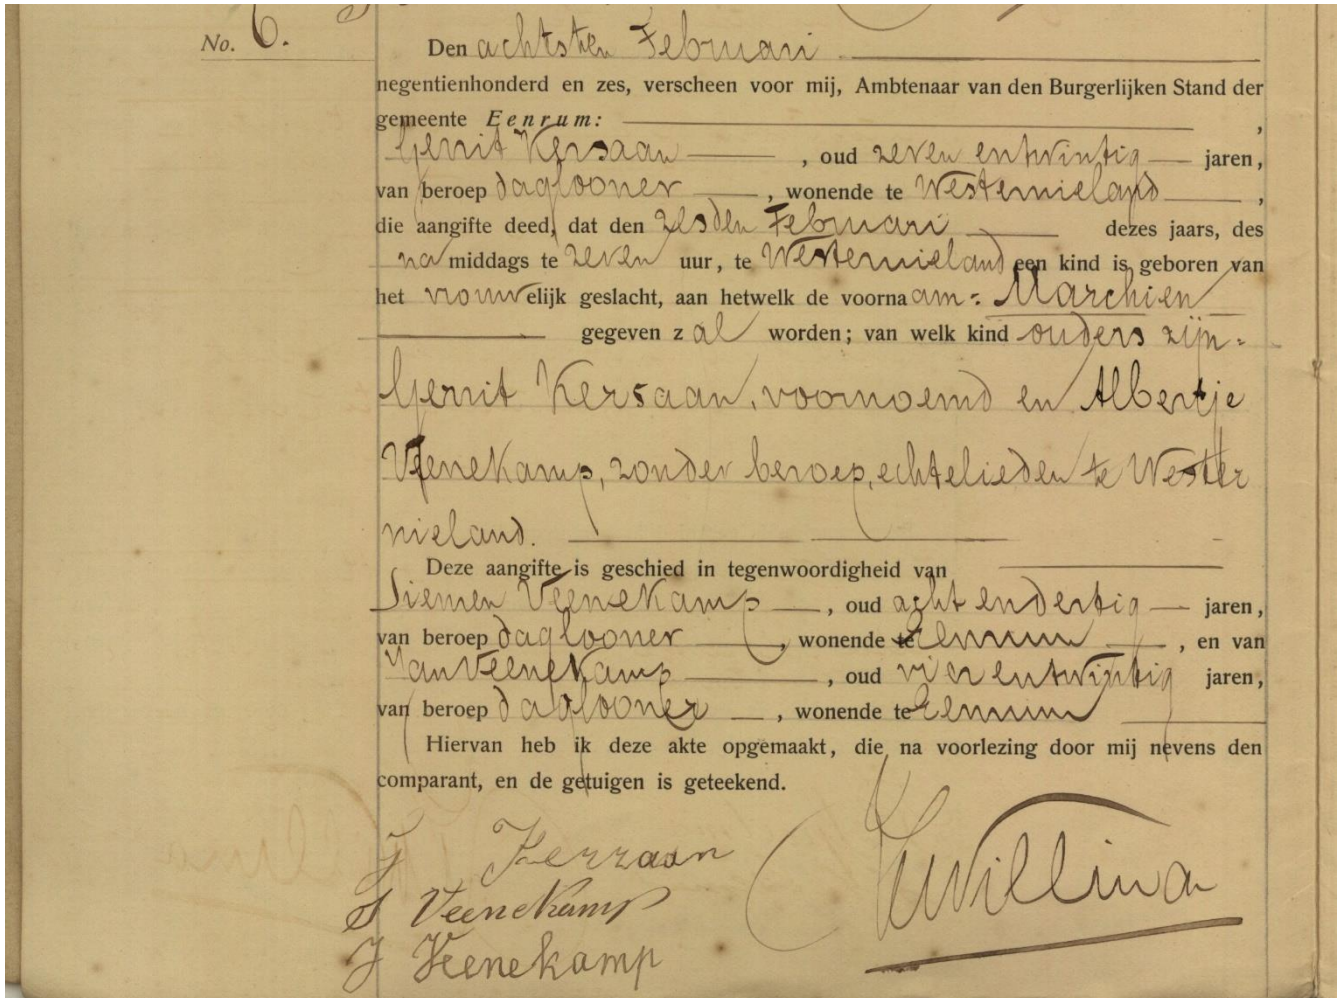 No. 6.
Den achtsten Februari
negentienhonderd en zes, verscheen voor mij, Ambtenaar van den Burgerlijken Stand der
gemeente Eenrum: ,
Gerrit Kersaan , oud zeven entwintig jaren,
van beroep daglooner , wonende te Westernieland ,
die aangifte deed, dat den zesden Februari dezes jaars, des
na middags te zeven uur, te Westernieland een kind is geboren van
het vrouwelijk geslacht, aan hetwelk de voornaam: Marchien
gegeven zal worden; van welk kind ouders zijn:
Gerrit Kersaan, voornoemd en Albertje
Veenekamp, zonder beroep, echtelieden te Wester
nieland.
Deze aangifte is geschied in tegenwoordigheid van
Siemen Veenekamp , oud acht endertig jaren,
van beroep daglooner , wonende te Eenrum , en van
Jan Veenekamp , oud vier entwintig jaren,
van beroep daglooner , wonende te Eenrum
Hiervan heb ik deze akte opgemaakt, die na voorlezing door mij nevens den
comparant, en de getuigen is geteekend.
G Kerzaan
S Veenekamp
J Veenekamp